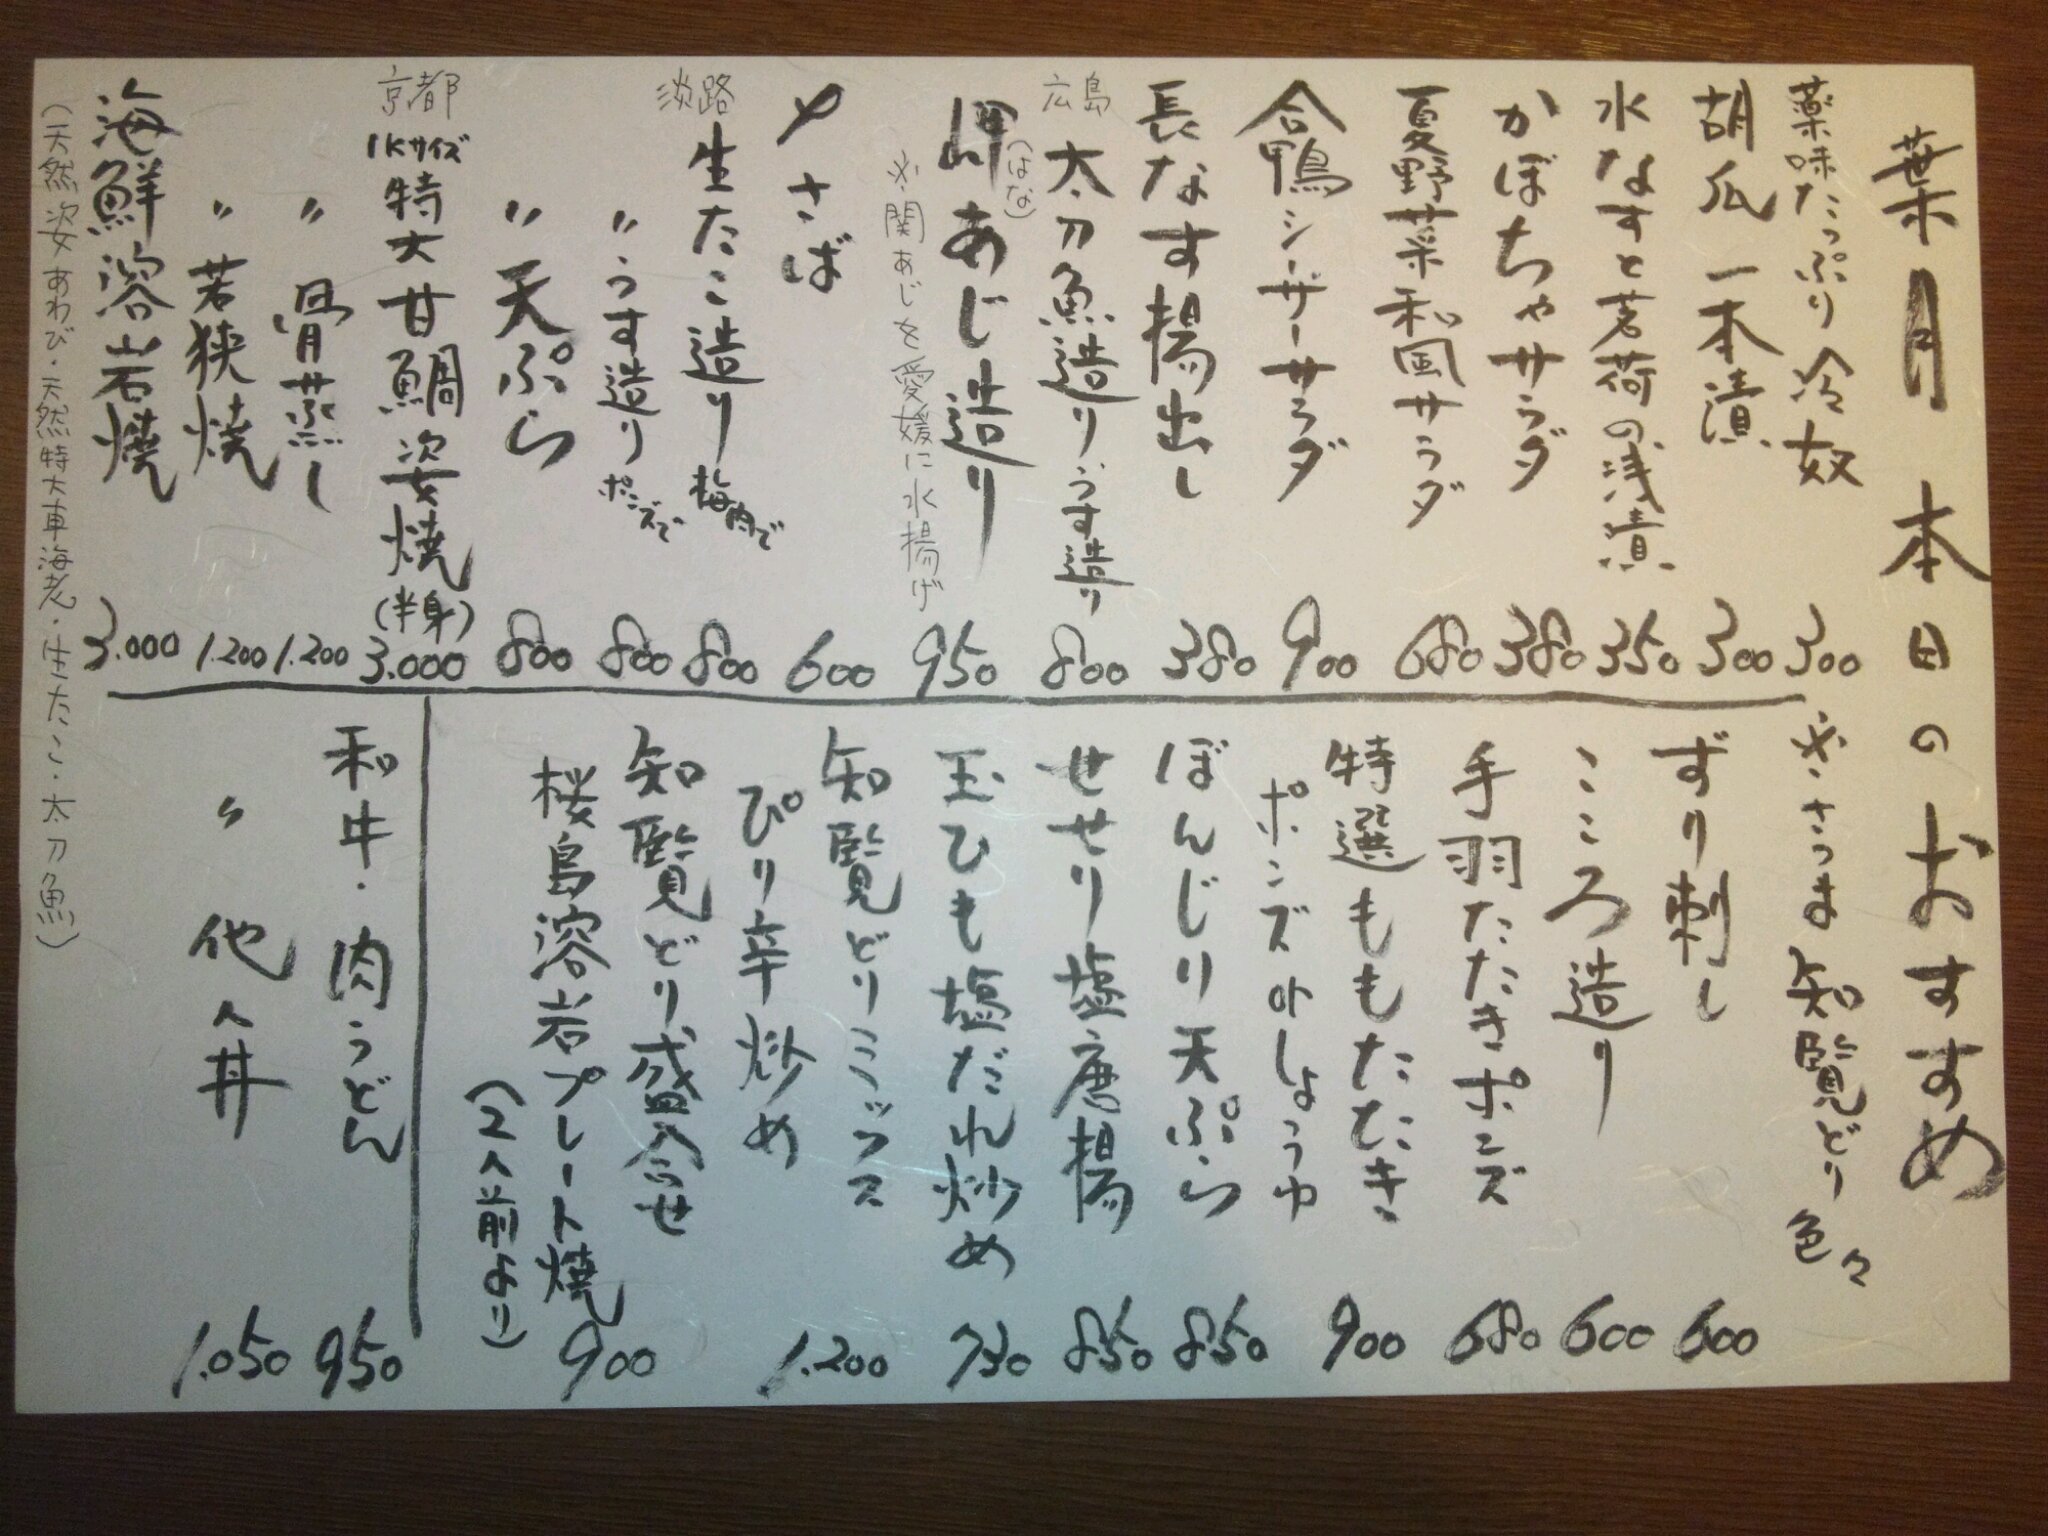 葉月 本日のおすすめ
薬味たっぷり冷奴 300
胡瓜一本漬 300
水なすと茗荷の浅漬 350
かぼちゃサラダ 380
夏野菜和風サラダ 680
合鴨シーザーサラダ 900
長なす揚出し 380
広島 太刀魚造り うす造り 800
岬(はな)あじ造り 950
※関あじを愛媛に水揚げ
〆さば 600
淡路 生たこ造り 梅肉で 800
〃 うす造り ポンズで 800
〃 天ぷら 800
京都 1Kサイズ 特大甘鯛姿焼(半身) 3.000
〃 骨蒸し 1.200
〃 若狭焼 1.200
海鮮溶岩焼 3.000
(天然姿あわび・天然特大車海老・生たこ・太刀魚)
※さつま知覧どり色々
ずり刺し 600
こころ造り 600
手羽たたきポンズ 680
特選ももたたき 900
ポンズorしょうゆ
ぼんじり天ぷら 850
せせり塩唐揚 850
玉ひも塩だれ炒め 730
知覧どりミックス
ぴり辛炒め 1.200
知覧どり盛合せ
桜島溶岩プレート焼 900
(2人前より)
和牛・肉うどん 950
〃 他人丼 1.050